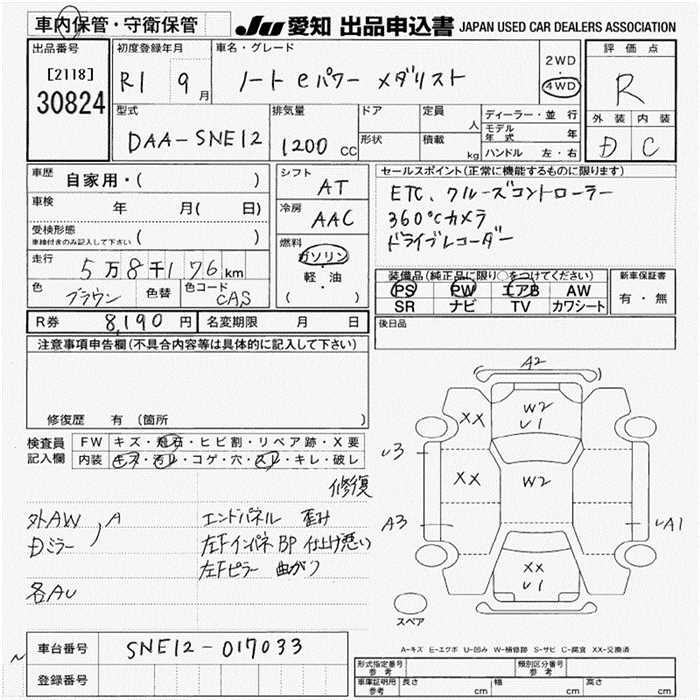 車内保管・守衛保管
JU 愛知 出品申込書 JAPAN USED CAR DEALERS ASSOCIATION
出品番号
[2118]
30824
初度登録年月
R1 9月
車名・グレード
ノート eパワー メダリスト
2WD
・
4WD
評価点
R
外装 内装
D C
型式
DAA-SNE12
排気量
1200 CC
ドア
形状
定員 人
積載 kg
ディーラー・並行
モデル年式 年
ハンドル 左・右
車歴 自家用・( )
車検 年 月( 日)
受検形態
車検付きのみ記入して下さい ( )
走行 5万8千176km
色 ブラウン 色替 色コード CAS
シフト
AT
冷房
AAC
燃料
ガソリン
軽・油
( )
セールスポイント(正常に機能するものに限ります)
ETC、クルーズコントローラー
360°Cカメラ
ドライブレコーダー
装備品(純正品に限り○をつけてください)
PS PW エアB AW
SR ナビ TV カワシート
新車保証書
有・無
R券 8,190円 名変期限 月 日
後日品
注意事項申告欄(不具合内容等は具体的に記入して下さい)
修復歴 有(箇所 )
検査員記入欄
FW キズ・飛石・ヒビ割・リペア跡・X要
内装 キズ・汚レ・コゲ・穴・スレ・キレ・破レ
修復
外AW
Dミラー
A
各AU
エンドパネル 歪み
左FインパネBP 仕上げ悪い
左Fピラー 曲がり
A2
W2
U1
XX
U3
XX
W2
A3
UA1
XX
U1
スペア
A-キズ E-エクボ U-凹み W-補修跡 S-サビ C-腐食 XX-交換済
車台番号 SNE12-017033
登録番号
形式指定番号 参考
類別区分番号 参考
車庫証明用 参考
長さ cm 幅 cm 高さ cm